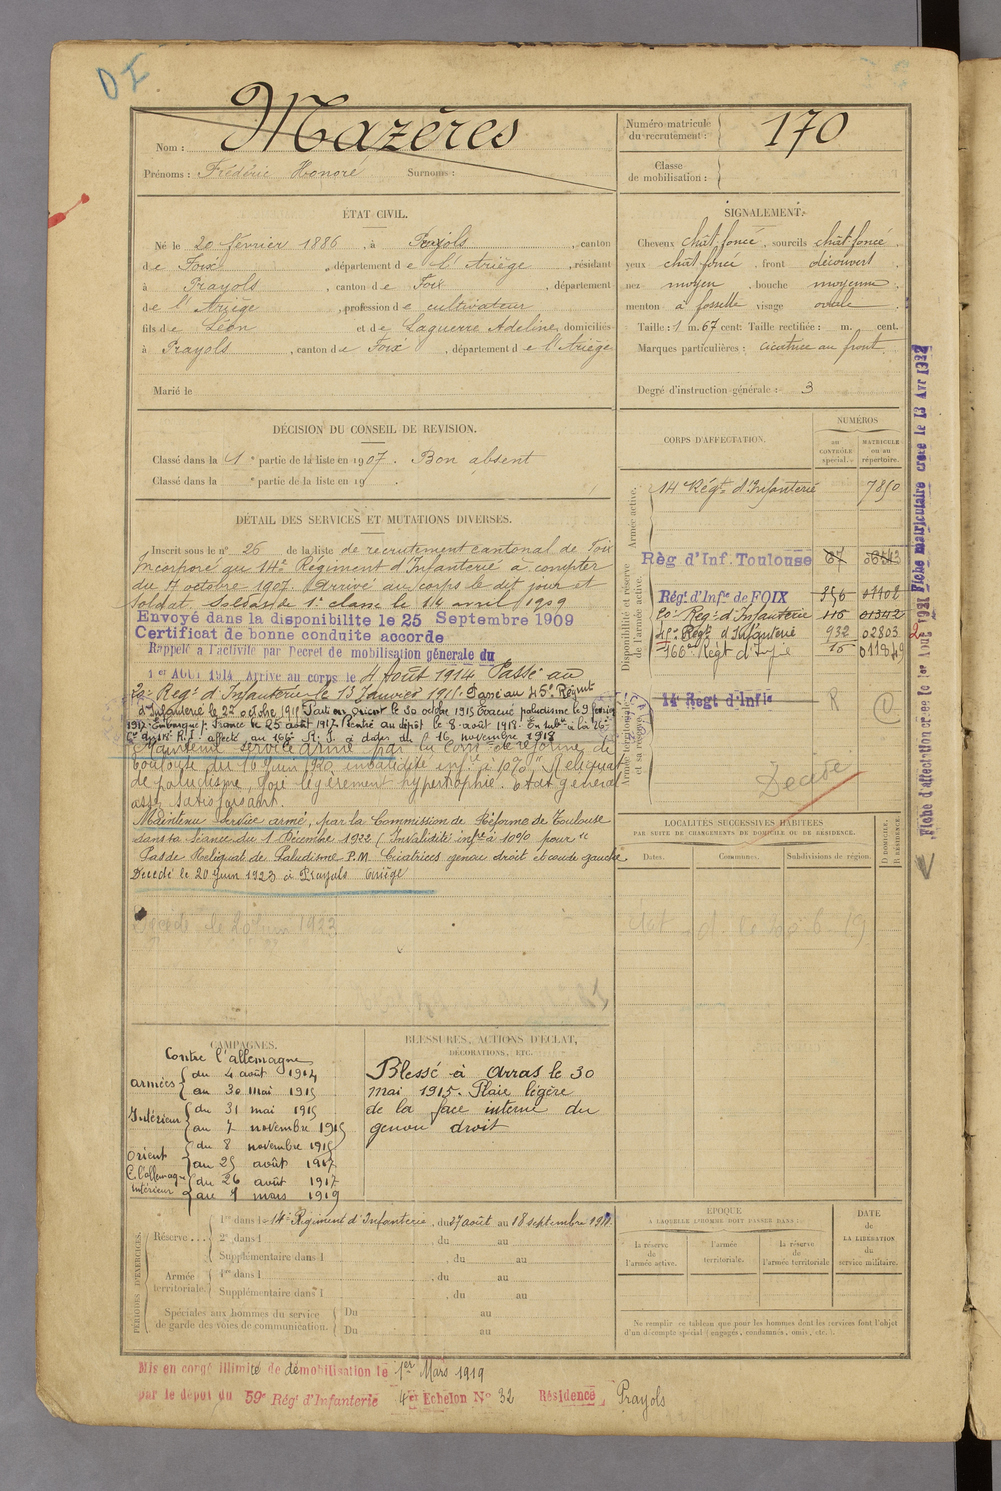 D I
Nom : Mazères
Prénoms : Frédéric Honoré Surnoms :
Numéro matricule du recrutement : 170
Classe de mobilisation :
ÉTAT CIVIL.
Né le 20 février 1886, à Prayols, canton
de Foix, département de l'Ariège, résidant
à Prayols, canton de Foix, département
de l'Ariège, profession de cultivateur
fils de Léon et de Laguerre Adeline, domiciliés
à Prayols, canton de Foix, département de l'Ariège
Marié le
SIGNALEMENT.
Cheveux chât. foncé, sourcils chât. foncé,
yeux chât. foncé, front découvert
nez moyen, bouche moyenne
menton à fossette visage ovale
Taille : 1 m. 67 cent. Taille rectifiée : m. cent.
Marques particulières : cicatrice au front
Degré d'instruction générale : 3
DÉCISION DU CONSEIL DE REVISION.
Classé dans la 1e partie de la liste en 1907. Bon absent
Classé dans la e partie de la liste en 19 .
DÉTAIL DES SERVICES ET MUTATIONS DIVERSES.
Inscrit sous le n° 26 de la liste de recrutement cantonal de Foix
Incorporé au 14e Régiment d'Infanterie à compter
du 7 octobre 1907. Arrivé au corps le dit jour et
soldat. Soldat de 1e classe le 14 avril 1909
Envoyé dans la disponibilite le 25 Septembre 1909
Certificat de bonne conduite accorde
Rappelé à l'activité par Decret de mobilisation générale du
1er Août 1914 Arrivé au corps le 4 Août 1914 Passé au
2e Reg. d'Infanterie le 13 Janvier 1915. Passé au 45e Régiment
d'Infanterie le 22 octobre 1915 Parti en Orient le 30 octobre 1915 Evacué paludisme le 9 février
1917. Embarqué p. France le 25 août 1917. Rentré au dépôt le 8 août 1918. En à la 26e
Cie du R.I. affecté au 166e R.I. à dater du 16 novembre 1918
Maintenu service armé par la Com. de réforme de
Toulouse du 16 Juin 1920 invalidité inf. à 10% Reliquat
de paludisme, foie légèrement hypertrophié. Etat général
assez satisfaisant.
Maintenu service armé, par la Commission de Réforme de Toulouse
dans sa séance du 1 Décembre 1922 (Invalidité infre à 10% pour "
Pas de Reliquat de Paludisme P.M. Cicatrices genou droit et coude gauche
Décédé le 20 Juin 1923 à Prayols Ariège
Décédé le 20 Juin 1923
CORPS D'AFFECTATION.
NUMÉROS
au CONTRÔLE spécial.
MATRICULE ou au répertoire.
Armée active.
14 Régt d'Infanterie 7850
Disponibilité et réserve de l'armée active.
Règ d'Inf. Toulouse 67
Régt d'Infie de FOIX 856 01108
Regt d'Infanterie 116 01342
Regt d'Infanterie 932 02803
166e Régt d'Infie 10 011849
Armée territoriale et sa réserve.
14e Regt d'Infie R
Décédé
Fiche d'affectation créée le 1er Aout 1921
Fiche matriculaire créée le 13 Avr 1922
LOCALITÉS SUCCESSIVES HABITÉES
PAR SUITE DE CHANGEMENTS DE DOMICILE OU DE RÉSIDENCE.
Dates. Communes. Subdivisions de région.
D DOMICILE. R RÉSIDENCE.
CAMPAGNES.
Contre l'allemagne
armées du 4 août 1914
au 30 mai 1915
Intérieur du 31 mai 1915
au 7 novembre 1915
Orient du 8 novembre 1915
au 25 août 1917
C. l'allemagne intérieur du 26 août 1917
au 1 mars 1919
BLESSURES, ACTIONS D'ÉCLAT,
DÉCORATIONS, ETC.
Blessé à Arras le 30
mai 1915. Plaie légère
de la face interne du
genou droit
PÉRIODES D'EXERCICES.
Réserve... 1re dans le 14e Régiment d'Infanterie, du 17 août au 18 septembre 1911
2e dans l , du au
Supplémentaire dans l , du au
Armée territoriale. 1re dans l , du au
Supplémentaire dans l , du au
Spéciales aux hommes du service de garde des voies de communication. Du au
Du au
ÉPOQUE
À LAQUELLE L'HOMME DOIT PASSER DANS :
la réserve de l'armée active.
l'armée territoriale.
la réserve de l'armée territoriale
DATE de LA LIBÉRATION du service militaire.
Ne remplir ce tableau que pour les hommes dont les services font l'objet
d'un décompte spécial (engagés, condamnés, omis, etc.).
Mis en congé illimité de démobilisation le 1er Mars 1919
par le dépôt du 59e Régt d'Infanterie 4e Echelon N° 32 Résidence Prayols